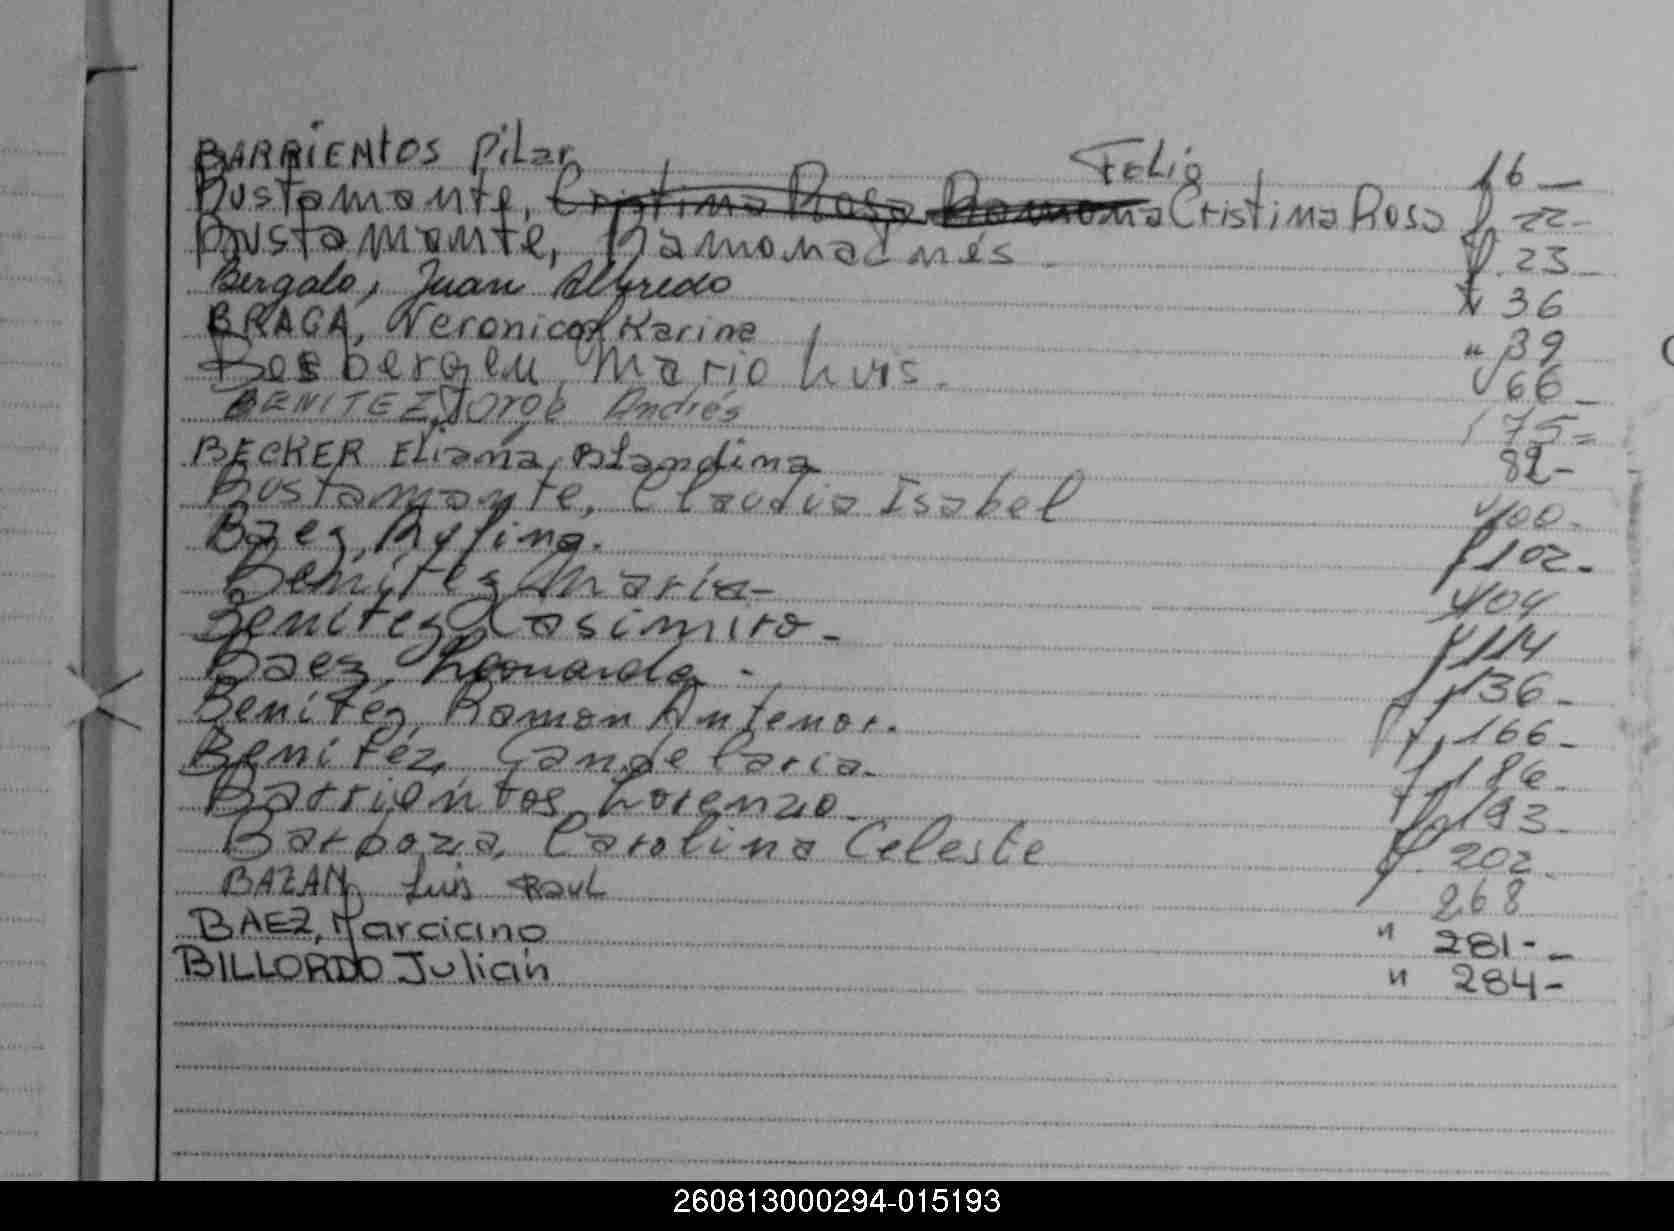 BARRIENTOS Pilar Folio 16 —
Bustamante, Cristina Rosa Ramona Cristina Rosa f. 22-
Bustamante, Ramona Inés. f. 23 -
Bergalo, Juan Alfredo 36
BRAGA, Veronica Karina " 39
Mario Luis. 66 -
BENITEZ, Jorge Andrés 75=
BECKER Eliana, Blandina 82-
Bustamante, Claudia Isabel 100-
Baez, Rufina. f 102-
Benitez, Maria- 104
Benitez Casimiro- f 114
Baez, Leonarda - f 136-
Benitez, Ramon Antenor. f, 166-
Benitez, Candelaria. f 186-
Barrientos, Lorenzo. f 193-
Barboza, Carolina Celeste f. 202
BAZAN, Luis Raul 268
BAEZ, Marciano " 281--
BILLORDO Julián " 284-
260813000294-015193